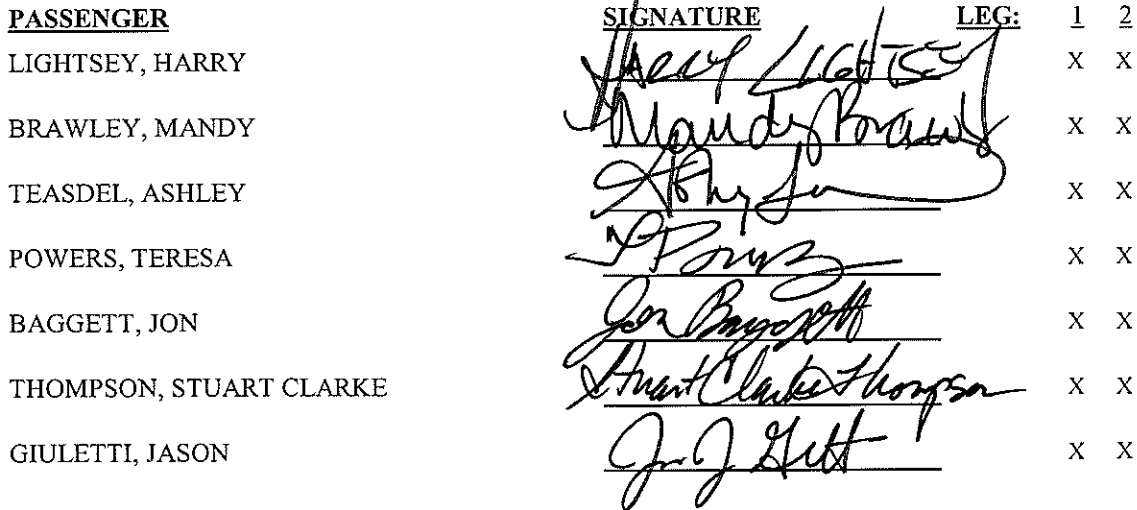 PASSENGER SIGNATURE LEG: 1 2
LIGHTSEY, HARRY Harry LIGHTSEY X X
BRAWLEY, MANDY Mandy Brawly X X
TEASDEL, ASHLEY X X
POWERS, TERESA X X
BAGGETT, JON Jon Baggett X X
THOMPSON, STUART CLARKE Stuart Clarke Thompson X X
GIULETTI, JASON X X